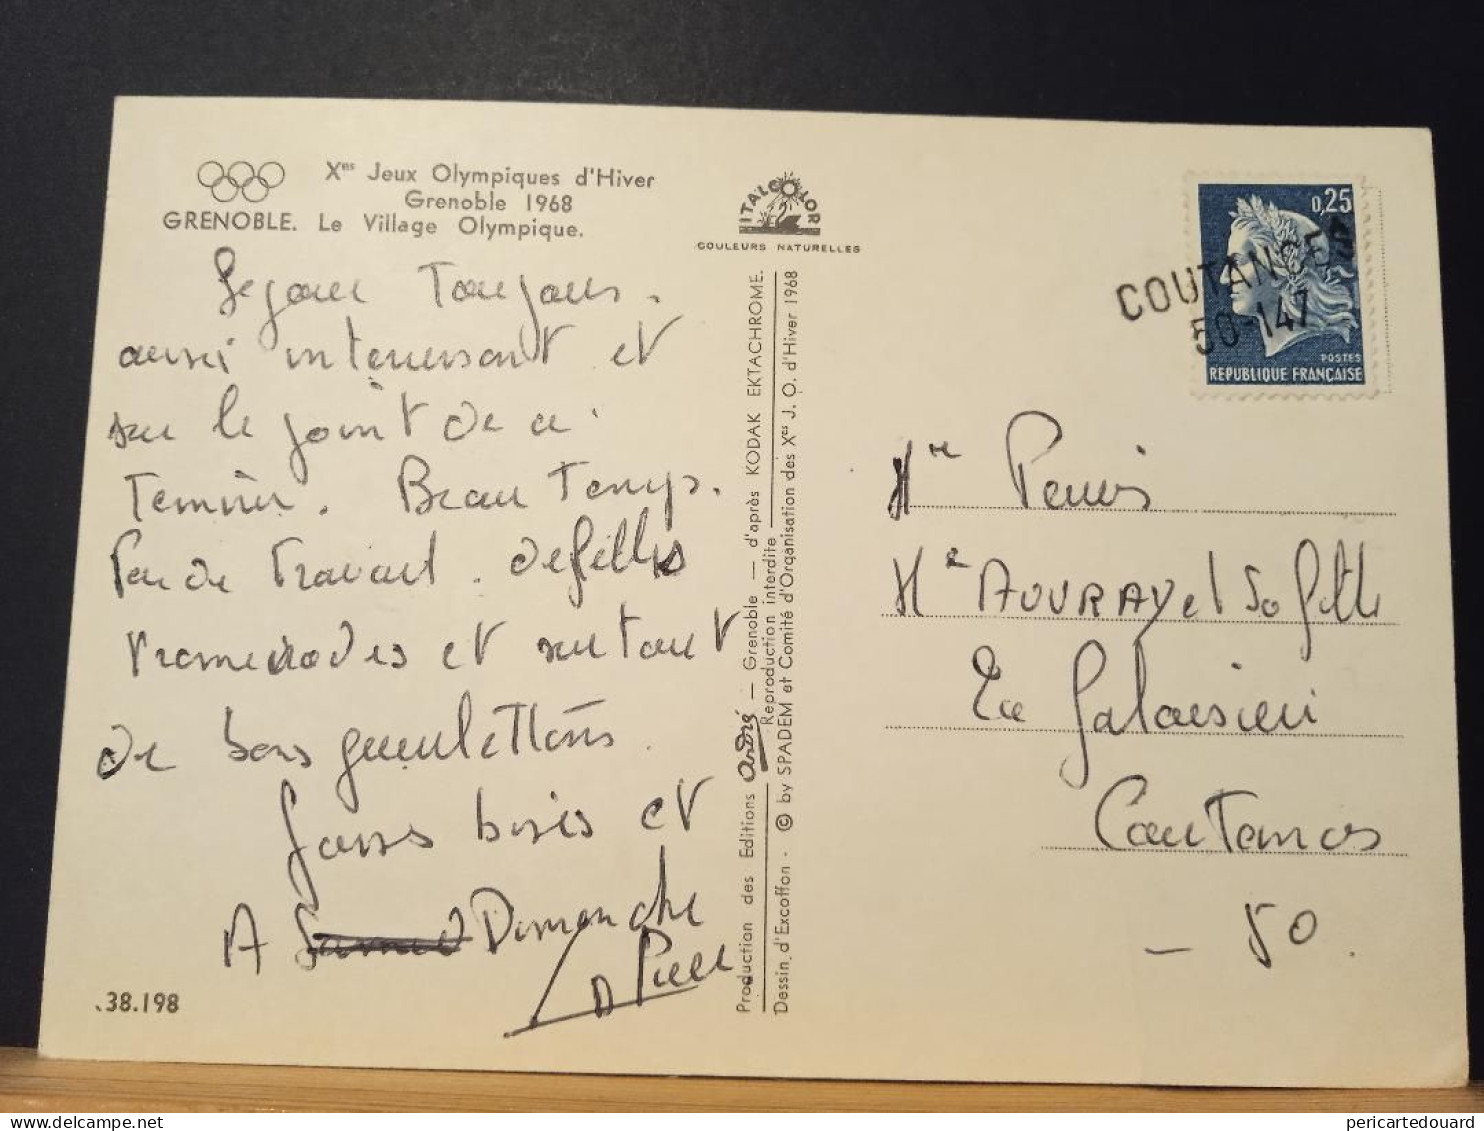 Xes Jeux Olympiques d'Hiver
Grenoble 1968
GRENOBLE. Le Village Olympique.
ITALCOLOR
COULEURS NATURELLES
Sejour Toujours
aussi interessant et
sur le point de
Terminer. Beau Temps.
Peu de Travail. de belles
Promenades et surtout
de bons gueulettons.
Gross bises et
A Samedi Dimanche
Pierre
38.198
Production des Editions André — Grenoble — d'après KODAK EKTACHROME.
Reproduction interdite
Dessin d'Excoffon - © by SPADEM et Comité d'Organisation des Xes J. O. d'Hiver 1968
0,25
POSTES
REPUBLIQUE FRANÇAISE
COUTANCES
50-147
Mr
Me AUVRAY et Sa fille
La Galaisière
Coutances
- 50.
pericartedouard